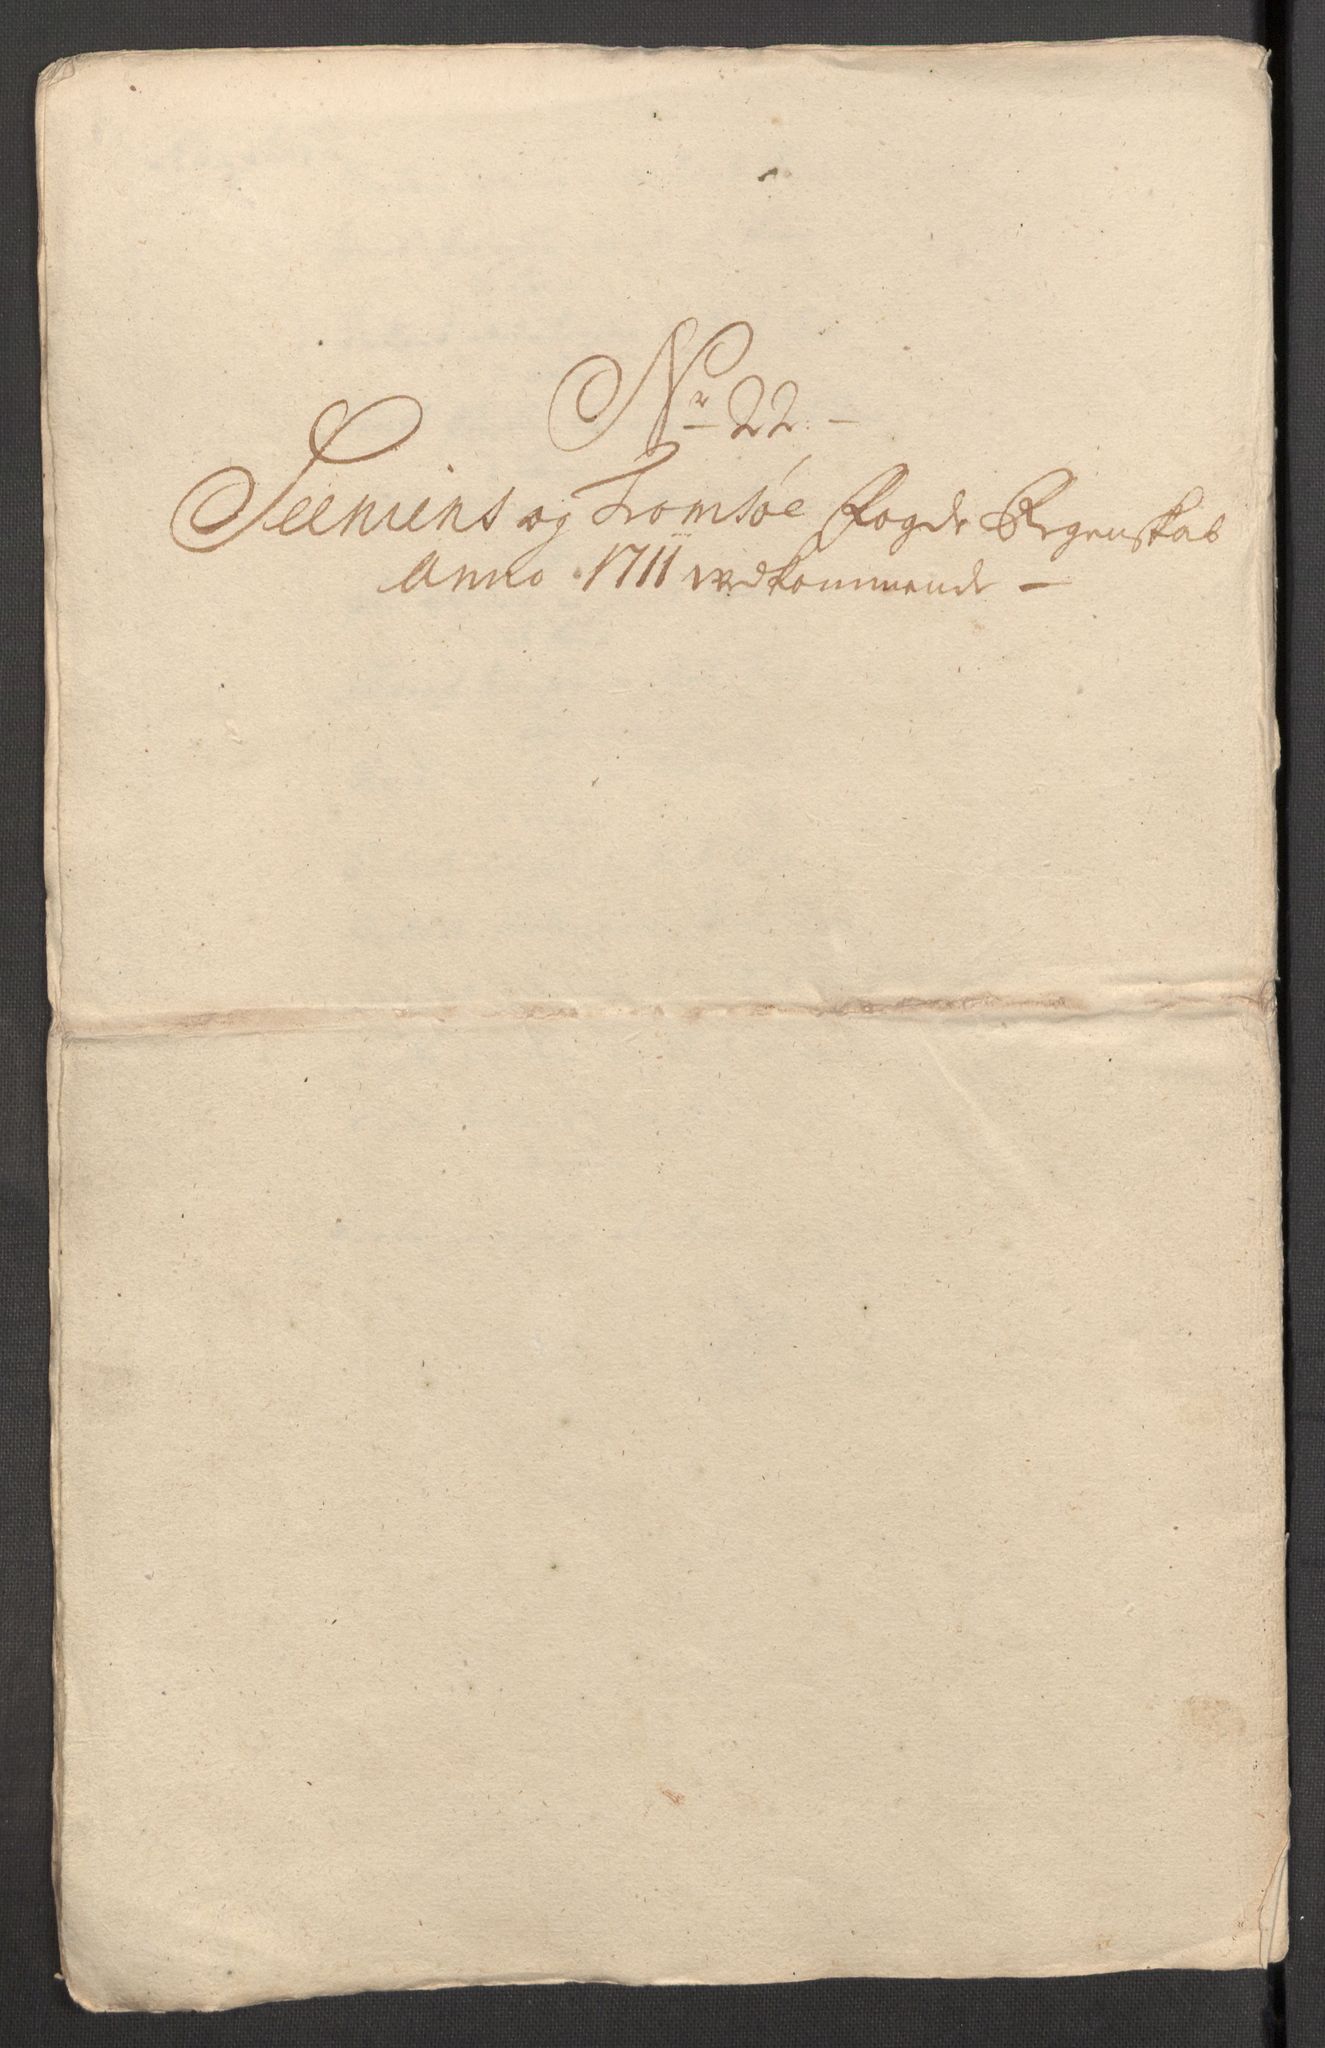 Nr 22 -
Seeniens og Tromsøe Fogde Regenskab
Anno 1711 vedkommende -